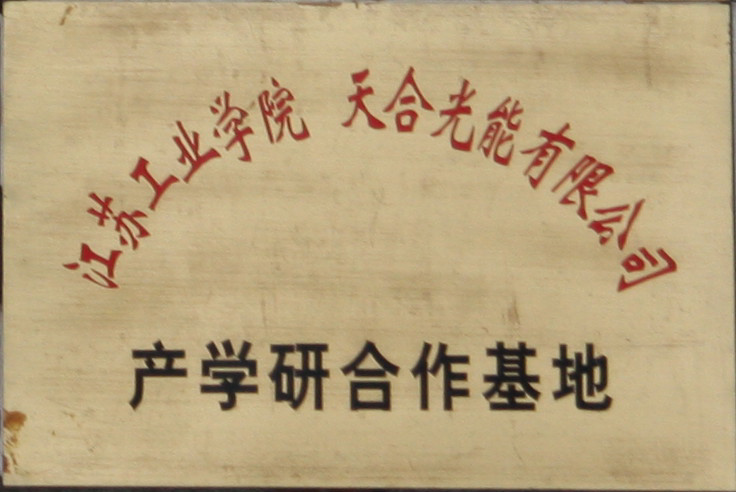 江苏工业学院 天合光能有限公司
产学研合作基地